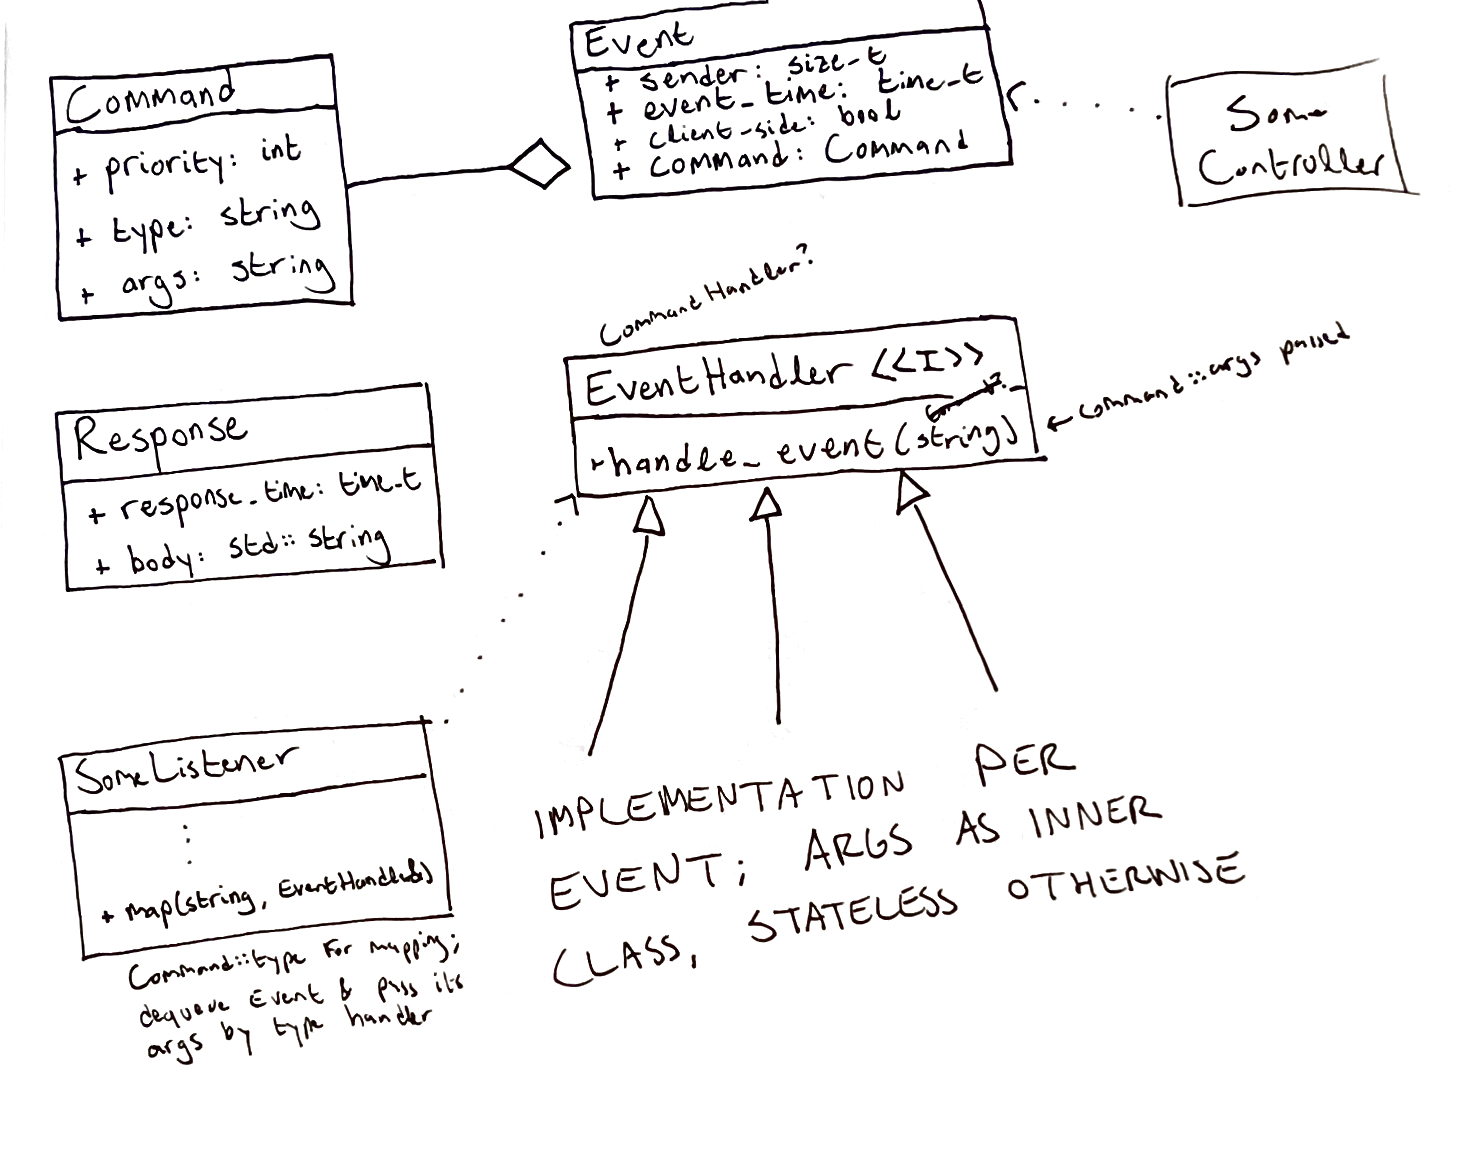 Command
+ priority: int
+ type: string
+ args: string
Event
+ sender: size_t
+ event_time: time_t
+ client-side: bool
+ command: Command
Some
Controller
CommandHandler?
EventHandler <<I>>
+handle_event(string)
← command::args passed
Response
+ response_time: time_t
+ body: std::string
SomeListener
+ map(string, EventHandler&)
Command::type for mapping;
dequeue Event & pass its
args by type hander
IMPLEMENTATION PER
EVENT; ARGS AS INNER
CLASS, STATELESS OTHERWISE